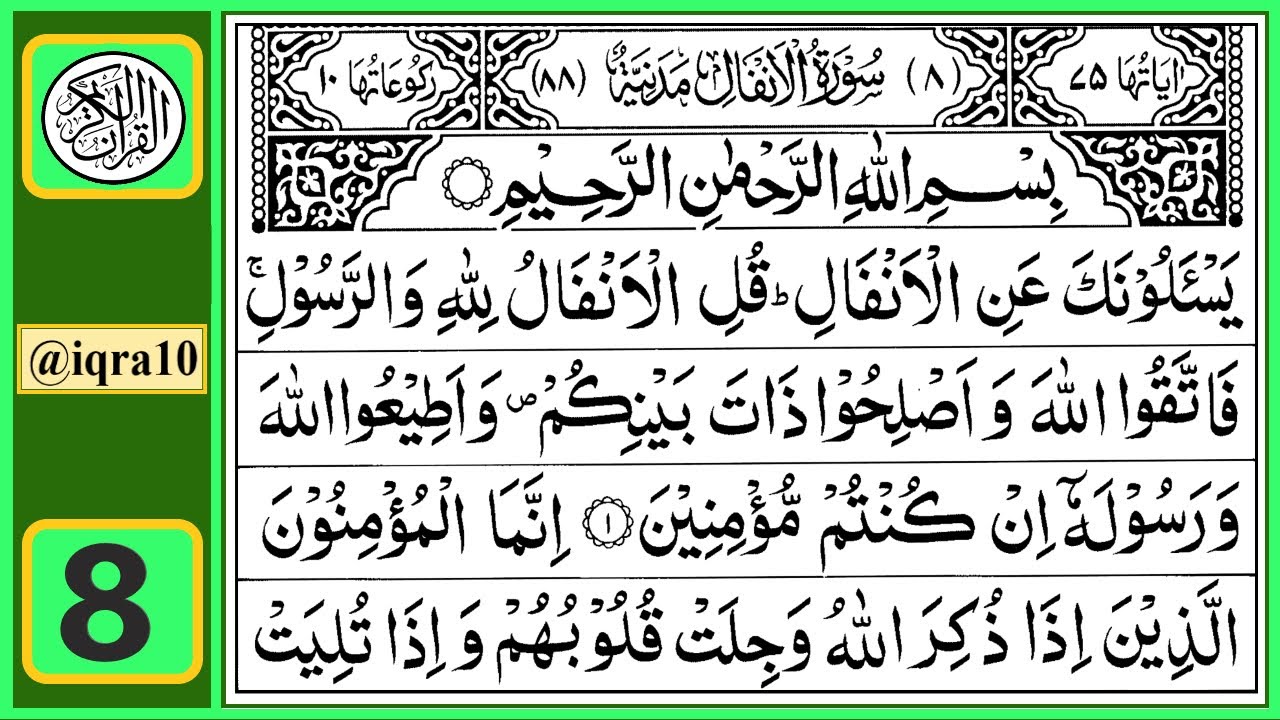 اٰيَاتُهَا ٧٥
(٨) سُوْرَةُ الْاَنْفَالِ مَدَنِيَّةٌ (٨٨)
رُكُوْعَاتُهَا ١٠
القرآن الكريم
بِسْمِ اللّٰهِ الرَّحْمٰنِ الرَّحِيْمِ
يَسْـَٔلُوْنَكَ عَنِ الْاَنْفَالِ ؕ قُلِ الْاَنْفَالُ لِلّٰهِ وَالرَّسُوْلِ ۚ
فَاتَّقُوا اللّٰهَ وَ اَصْلِحُوْا ذَاتَ بَيْنِكُمْ ۪ وَ اَطِيْعُوا اللّٰهَ
وَ رَسُوْلَهٗۤ اِنْ كُنْتُمْ مُّؤْمِنِيْنَ ١ اِنَّمَا الْمُؤْمِنُوْنَ
الَّذِيْنَ اِذَا ذُكِرَ اللّٰهُ وَجِلَتْ قُلُوْبُهُمْ وَ اِذَا تُلِيَتْ
@iqra10
8